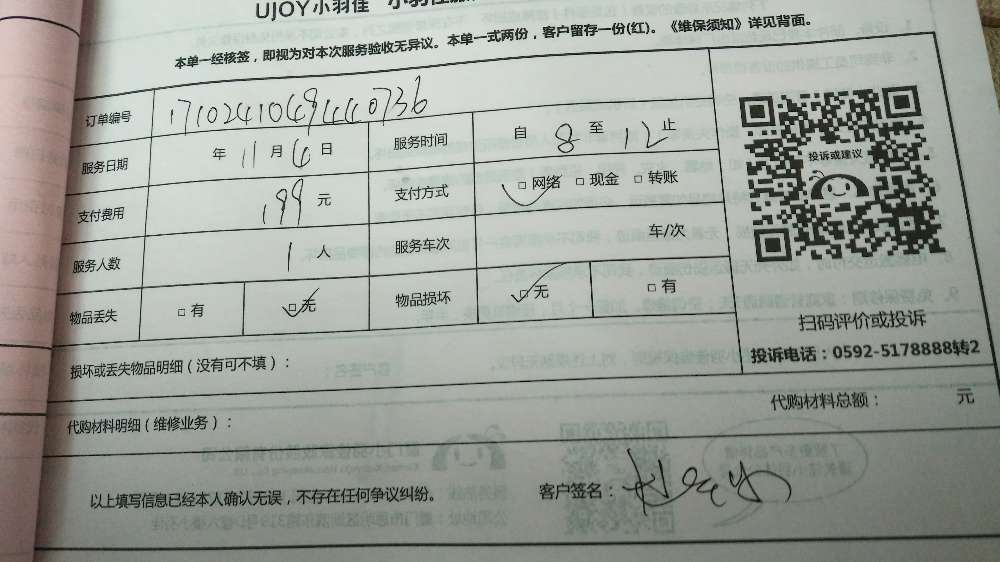 UJOY小羽佳
本单一经核签，即视为对本次服务验收无异议。本单一式两份，客户留存一份(红)。《维保须知》详见背面。
订单编号 171024104944 0736
服务日期 年 11 月 6 日 服务时间 自 8 至 12 止
支付费用 199 元 支付方式 □网络 □现金 □转账
服务人数 1 人 服务车次 车/次
物品丢失 □有 □无 物品损坏 □无 □有
投诉或建议
扫码评价或投诉
投诉电话：0592-5178888转2
损坏或丢失物品明细（没有可不填）：
代购材料明细（维修业务）： 代购材料总额： 元
以上填写信息已经本人确认无误，不存在任何争议纠纷。 客户签名：